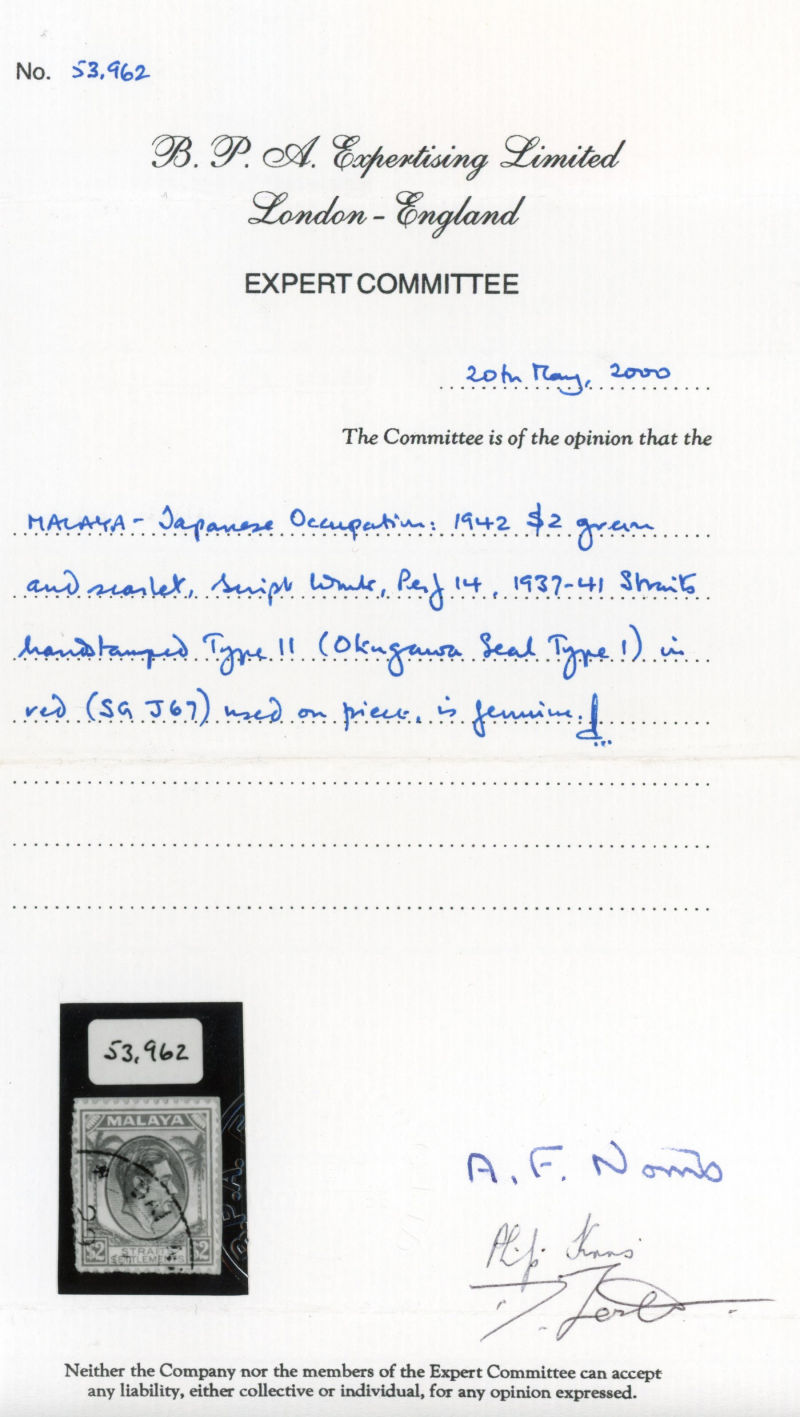 No. 53,962
B. P. A. Expertising Limited
London - England
EXPERT COMMITTEE
20th May, 2000
The Committee is of the opinion that the
MALAYA - Japanese Occupation: 1942 $2 green
and scarlet, Script Wmk, Perf 14, 1937-41 Straits
handstamped Type 11 (Okugawa Seal Type 1) in
red (SG J67) used on piece, is genuine.
53,962
MALAYA
$2 STRAITS $2
SETTLEMENTS
B.P.A.
A. F. Norris
Neither the Company nor the members of the Expert Committee can accept
any liability, either collective or individual, for any opinion expressed.